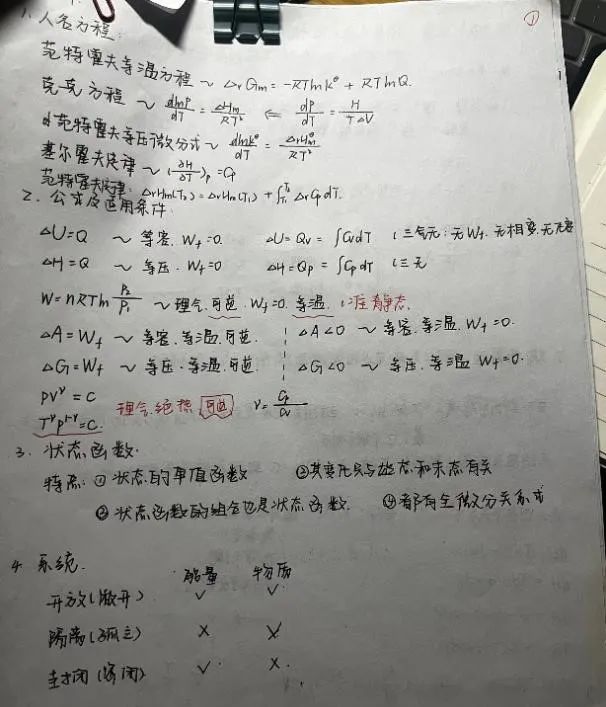 ①
1. 人名方程:
范特霍夫等温方程 ~ ΔrGm = -RTlnK^θ + RTlnQ.
克克方程 ~ dlnP/dT = ΔHm/RT² ⇐ dP/dT = H/TΔV
范特霍夫等压微分式 ~ dlnK^θ/dT = ΔrHm^θ/RT²
基尔霍夫定律 ~ (∂H/∂T)p = Cp
范特霍夫定律: ΔrHm(T₂) = ΔrHm(T₁) + ∫ΔrCp dT.
2. 公式及适用条件.
ΔU=Q ~ 等容. Wf=0. ΔU=Qv=∫CvdT (三气无: 无Wf. 无相变. 无
ΔH=Q ~ 等压. Wf=0 ΔH=Qp=∫CpdT (三无
W=nRTln P₂/P₁ ~ 理气. 可逆. Wf=0. 等温. 准静态.
ΔA=Wf ~ 等容. 等温. 可逆. ΔA<0 ~ 等容. 等温. Wf=0.
ΔG=Wf ~ 等压. 等温. 可逆. ΔG<0 ~ 等压. 等温 Wf=0.
PV^γ=C
理气. 绝热. 可逆 γ=Cp/Cv
T^γP^1-γ=C.
3. 状态函数.
特点: ① 状态的单值函数 ②其变化只与始态和末态有关
③ 状态函数的组合也是状态函数. ④都有全微分关系式
4. 系统. 能量 物质
开放(敞开) ✓ ✓
隔离(孤立) ×
封闭(密闭) ✓ ×